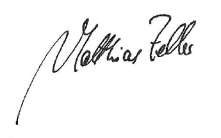 Matthias Zeller